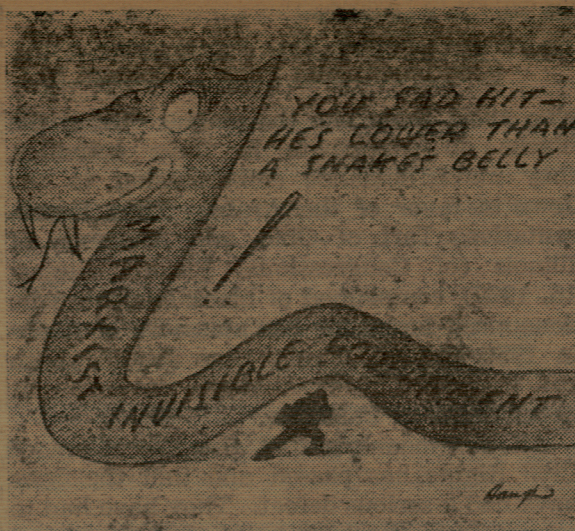 YOU SAD HIT—
HES LOWER THAN
A SNAKES BELLY
MARXIST
INVISIBLE GOVERNMENT